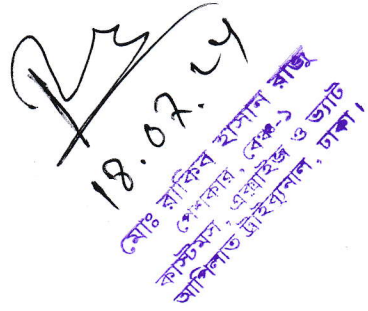 18.07.24
মোঃ রাকিব হাসান রাজু
পেশকার, বেঞ্চ-১
কাস্টমস, এক্সাইজ ও ভ্যাট
আপিলাত ট্রাইব্যুনাল, ঢাকা।